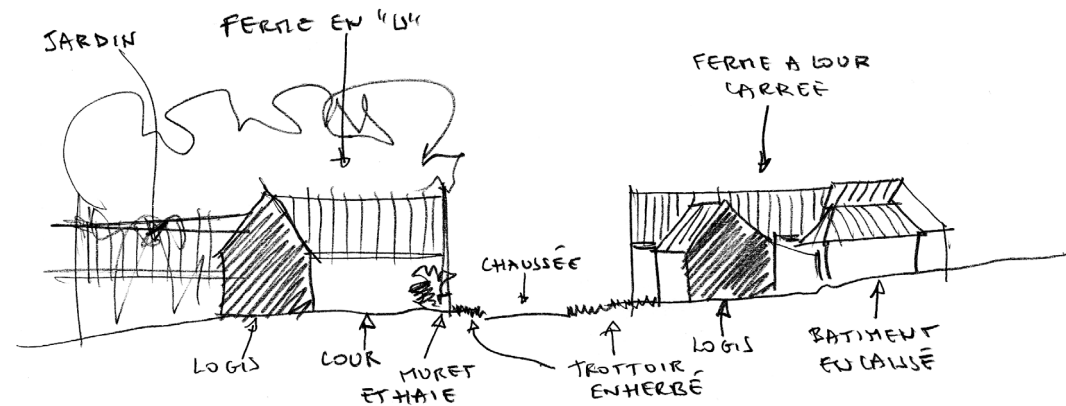 JARDIN
FERME EN "U"
FERME A COUR
CARREÉ
CHAUSSÉE
LOGIS
COUR
MURET
ET HAIE
TROTTOIR
ENHERBÉ
LOGIS
BATIMENT
ENCAISSÉ